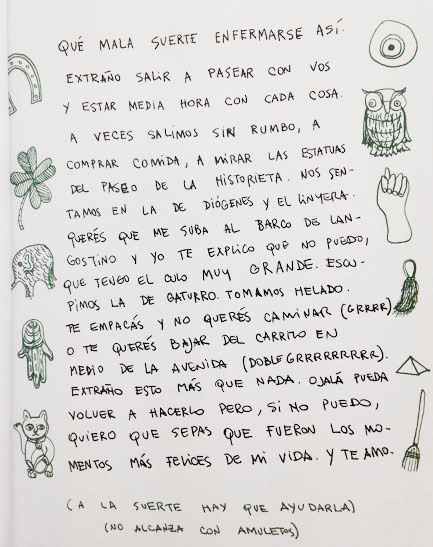 QUÉ MALA SUERTE ENFERMARSE ASÍ.
EXTRAÑO SALIR A PASEAR CON VOS
Y ESTAR MEDIA HORA CON CADA COSA.
A VECES SALIMOS SIN RUMBO, A
COMPRAR COMIDA, A MIRAR LAS ESTATUAS
DEL PASEO DE LA HISTORIETA. NOS SEN-
TAMOS EN LA DE DIÓGENES Y EL LINYERA.
QUERÉS QUE ME SUBA AL BARCO DE LAN-
GOSTINO Y YO TE EXPLICO QUE NO PUEDO,
QUE TENGO EL CULO MUY GRANDE. ESCU-
PIMOS LA DE GATURRO. TOMAMOS HELADO.
TE EMPACÁS Y NO QUERÉS CAMINAR (GRRRR)
O TE QUERÉS BAJAR DEL CARRITO EN
MEDIO DE LA AVENIDA (DOBLE GRRRRRRRRR).
EXTRAÑO ESTO MÁS QUE NADA. OJALÁ PUEDA
VOLVER A HACERLO PERO, SI NO PUEDO,
QUIERO QUE SEPAS QUE FUERON LOS MO-
MENTOS MÁS FELICES DE MI VIDA. Y TE AMO.
(A LA SUERTE HAY QUE AYUDARLA)
(NO ALCANZA CON AMULETOS)